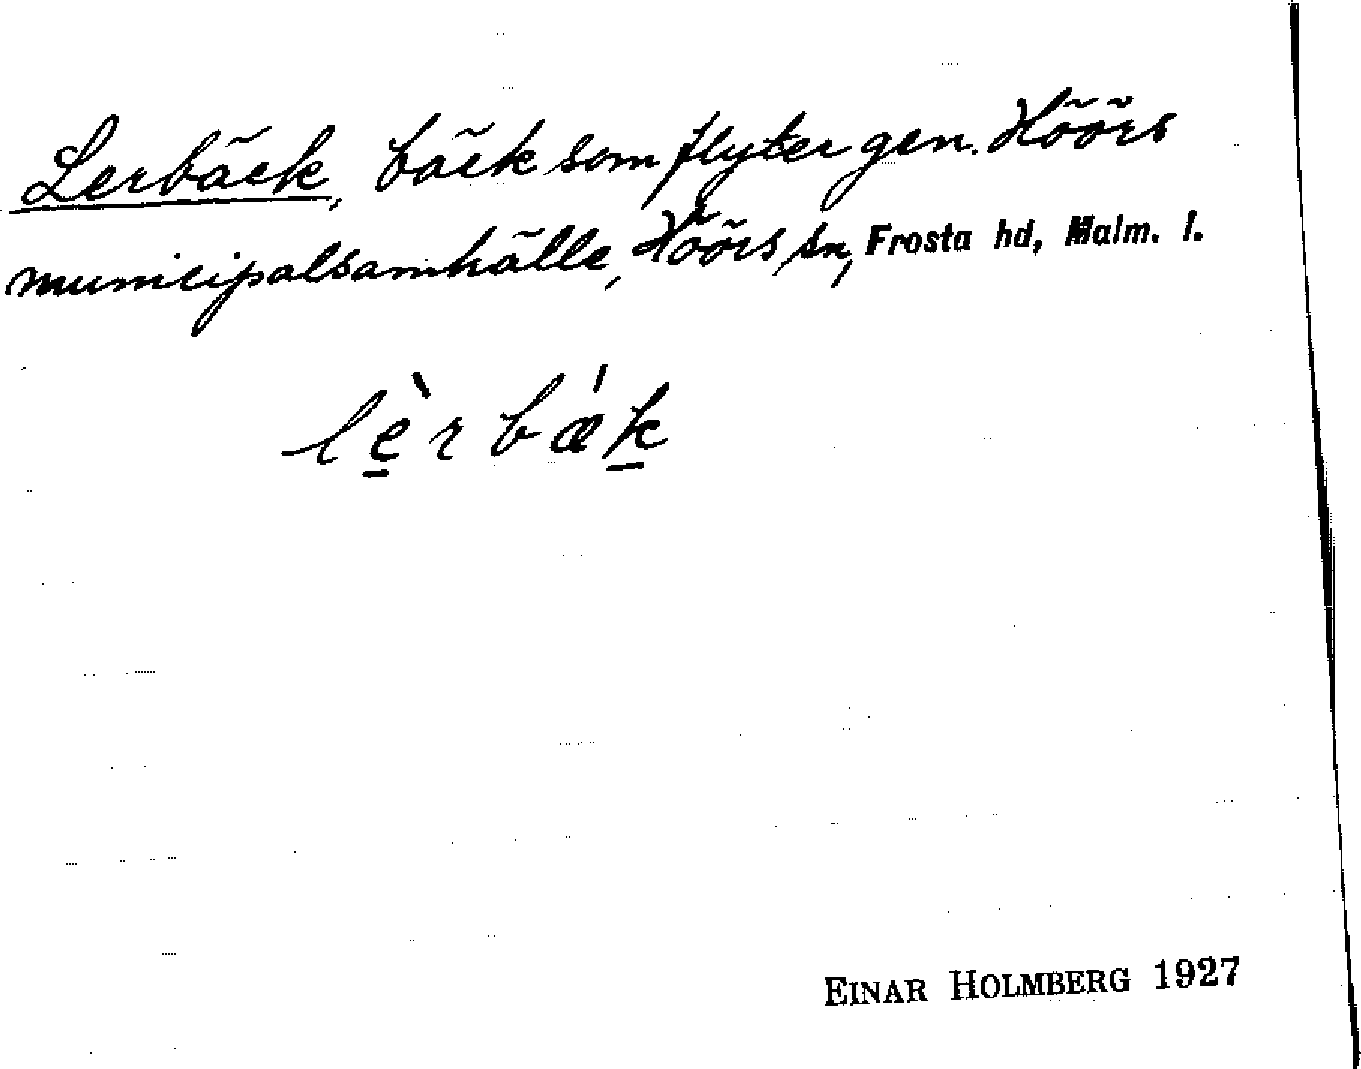 Lerbäck, bäck som flyter gen. Höörs
municipalsamhälle, Höörs sn, Frosta hd, Malm. l.
lèrbǽk
EINAR HOLMBERG 1927